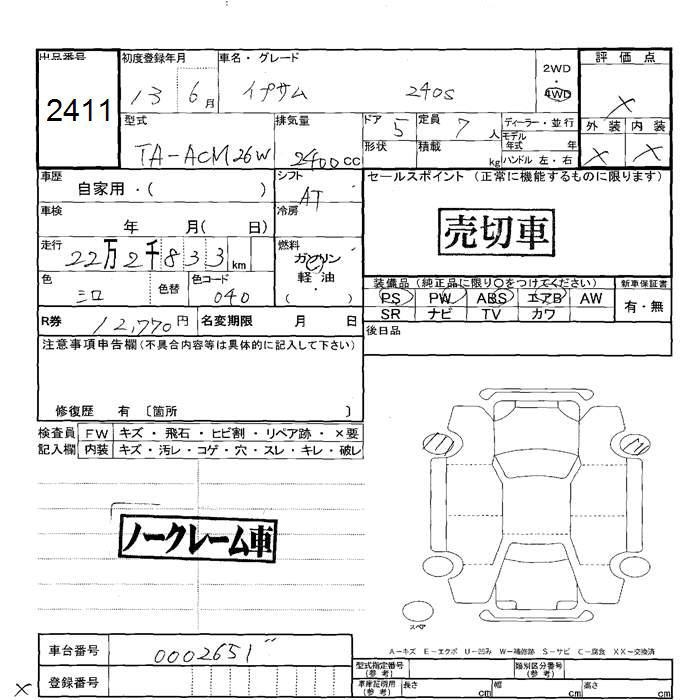 出品番号
2411
初度登録年月
13 6月
車名・グレード
イプサム 240S
2WD
・
4WD
評価点
×
外装 内装
× ×
型式
TA-ACM26W
排気量
2400cc
ドア 5
形状
定員 7人
積載 kg
ディーラー・並行
モデル年式 年
ハンドル 左・右
車歴
自家用・( )
シフト
AT
車検
年 月( 日)
冷房
走行
22万2千833km
燃料
ガソリン
軽油
( ・ )
色
シロ
色替
色コード
040
R券 12,770円
名変期限 月 日
セールスポイント(正常に機能するものに限ります)
売切車
装備品(純正品に限り○をつけてください)
PS PW ABS エアB AW
SR ナビ TV カワ
新車保証書
有・無
後日品
注意事項申告欄(不具合内容等は具体的に記入して下さい)
修復歴 有 〔箇所 〕
検査員記入欄
FW キズ・飛石・ヒビ割・リペア跡・×要
内装 キズ・汚レ・コゲ・穴・スレ・キレ・破レ
ノークレーム車
スペア
A－キズ E－エクボ U－凹み W－補修跡 S－サビ C－腐食 XX－交換済
車台番号 0002651
登録番号
×
型式指定番号(参考)
類別区分番号(参考)
車庫証明用(参考) 長さ cm 幅 cm 高さ cm